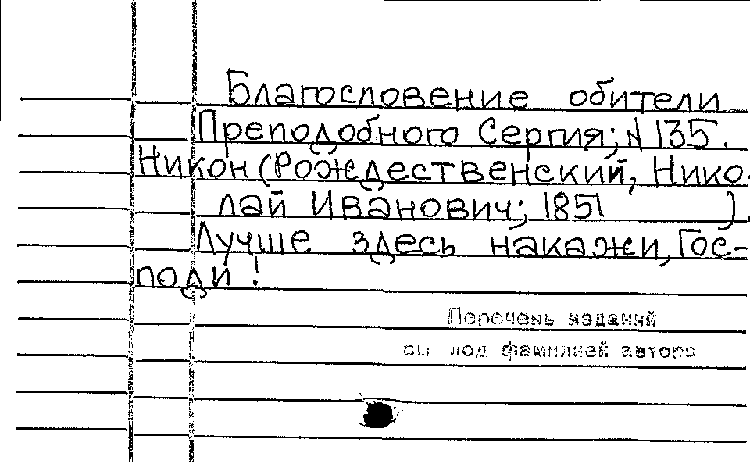 Благословение обители
Преподобного Сергия; № 135.
Никон (Рождественский, Нико-
лай Иванович; 1851 ).
Лучше здесь накажи, Гос-
поди!
Перечень изданий
см. под фамилией автора